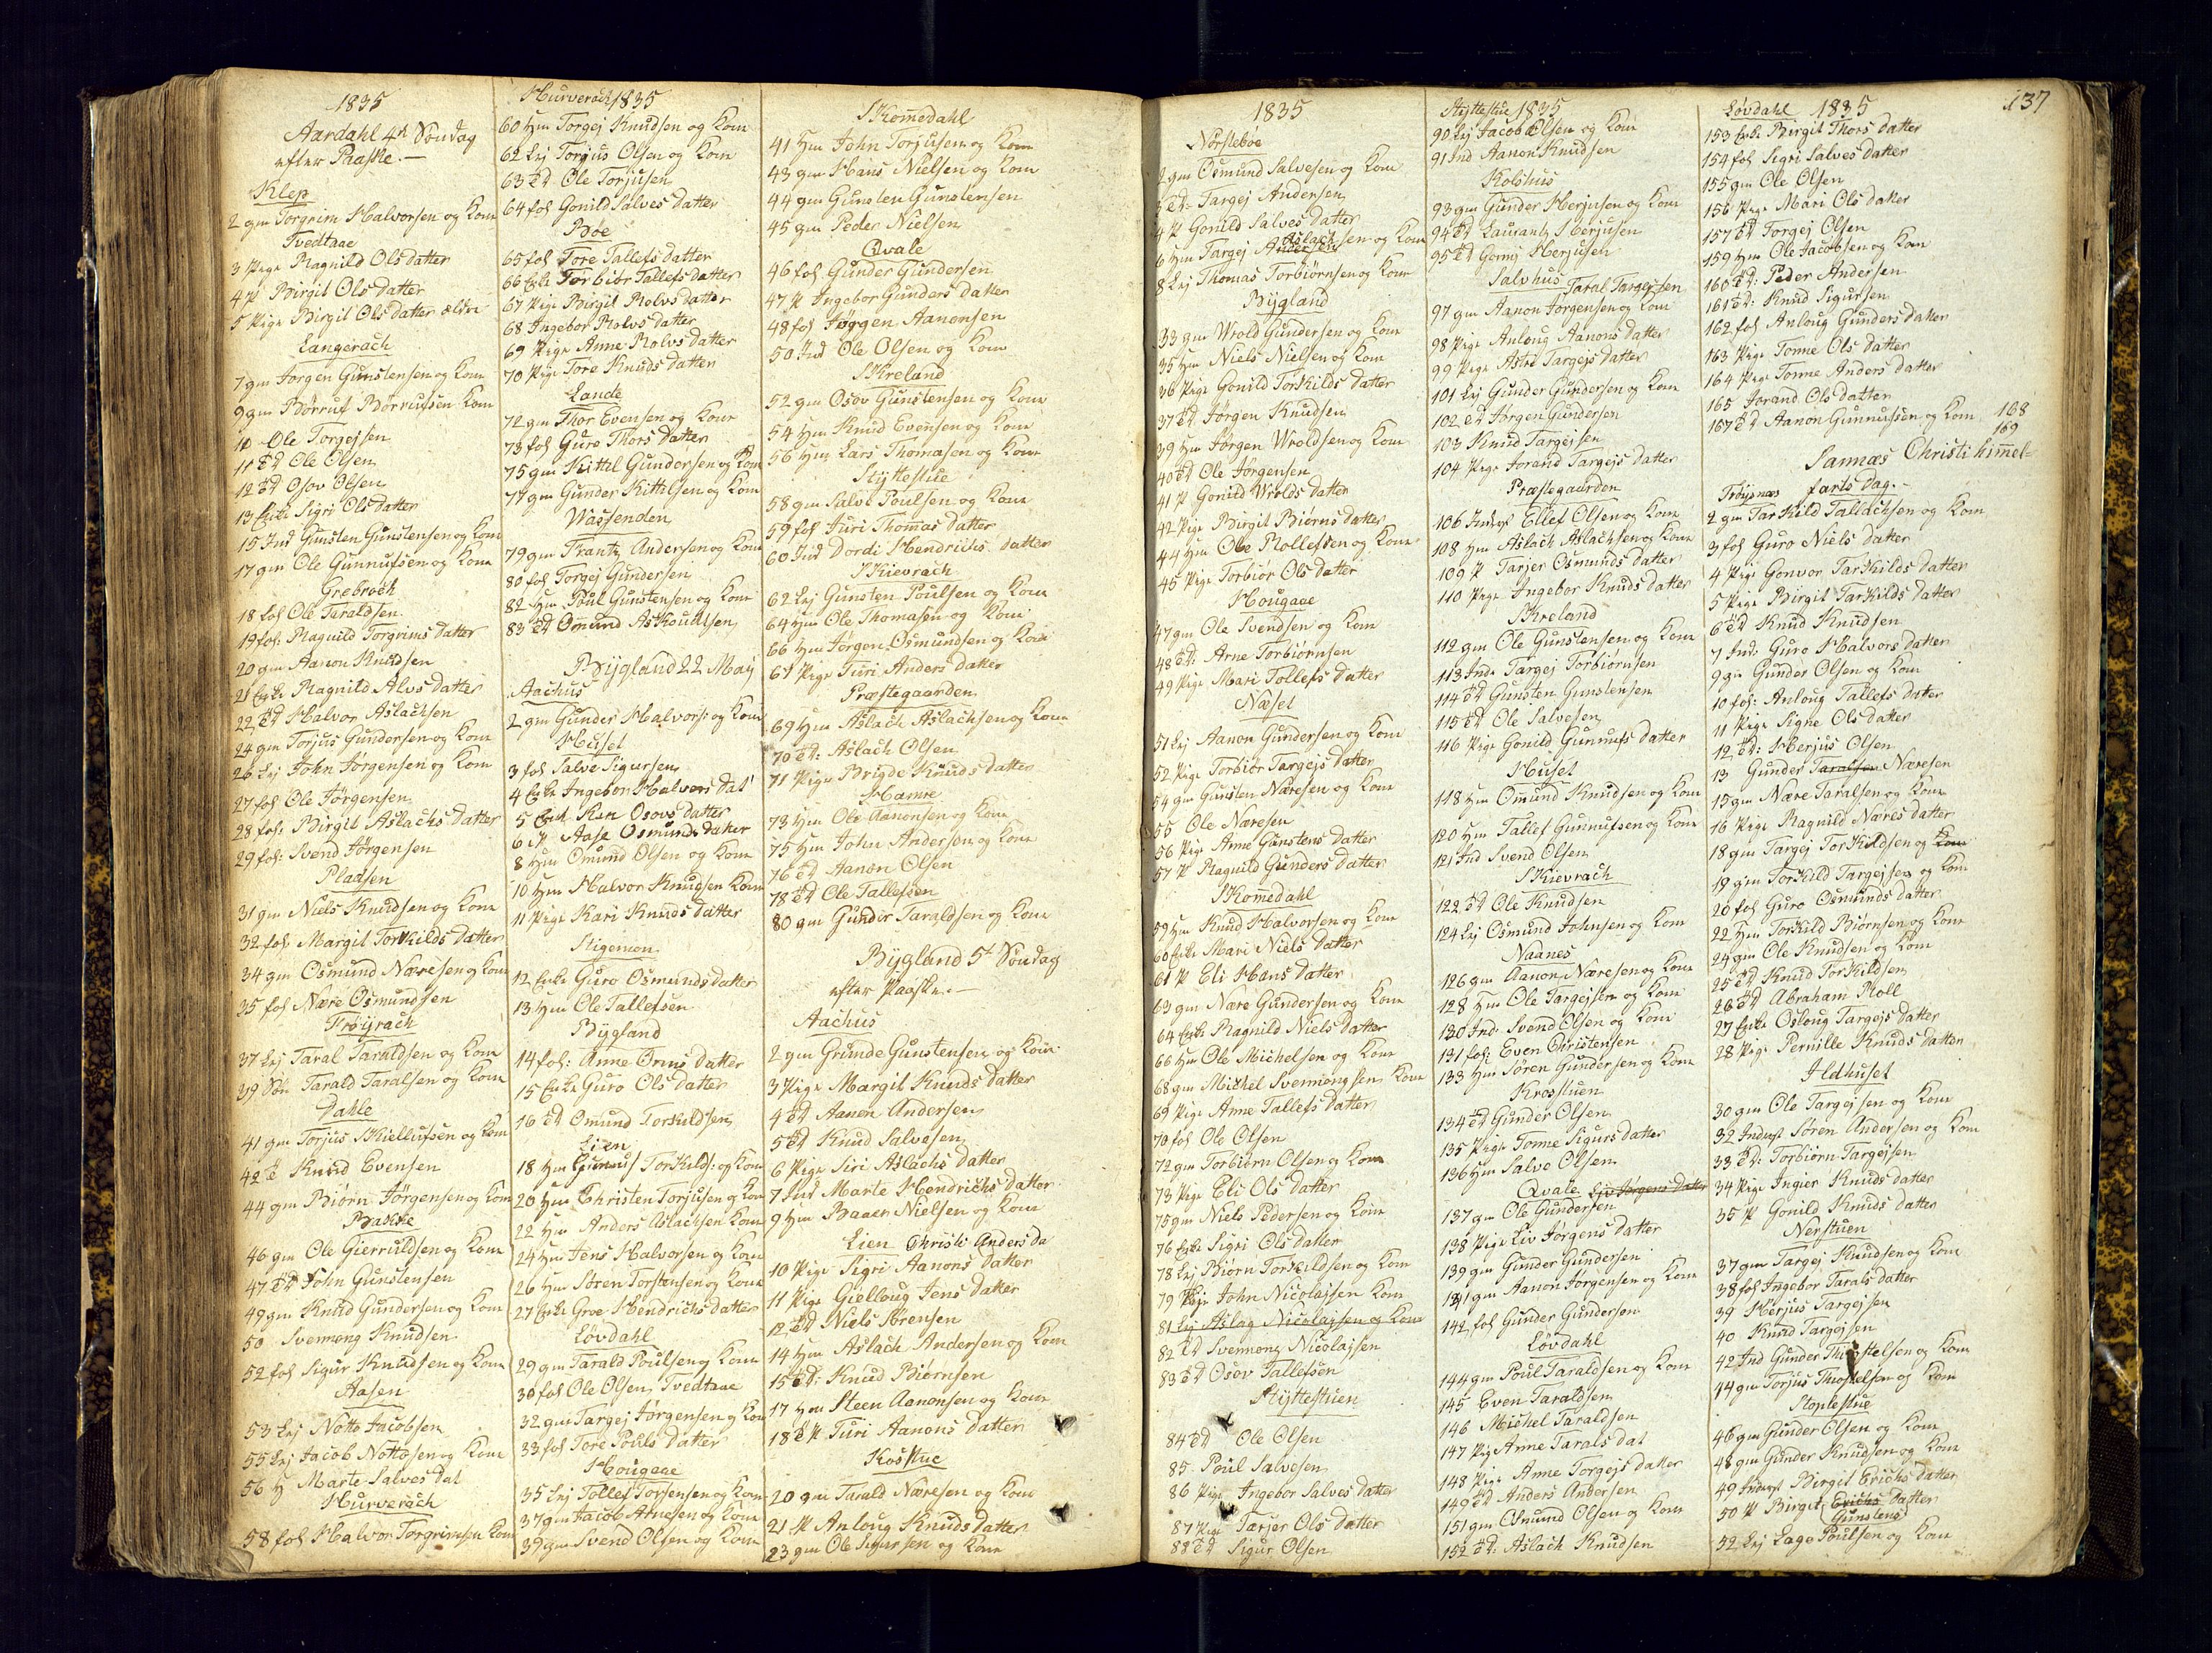 1835
Aardahl 4de Søndag
efter Paaske.—
Klep
2 gm Torgrim Halvorsen og Kone
Tvedtaae
3 Pige Ragnild Olsdatter
4 P Birgit Olsdatter
5 Pige Birgit Olsdatter ældre
Langerach
7 gm Jørgen Gunstensen og Kone
9 gm Børruf Børrufsen Kone
10 Ole Torgejsen
11 Ed Ole Olsen
12 Ed Osov Olsen
13 Enke Sigri Olsdatter
15 Ind Gunsten Gunstensen og Kone
17 gm Ole Gunnufsen og Kone
Grebroch
18 foh Ole Taraldsen
19 foh: Ragnild Torgrims Datter
20 gm Aanon Knudsen
21 Enke Ragnild Alvs Datter
22 Ed Halvor Aslachsen
24 gm Torjus Gundersen og Kone
26 Lej John Jørgensen og Kone
27 foh Ole Jørgensen
28 foh: Birgit Aslachs Datter
29 foh: Svend Jørgensen
Pladsen
31 gm Niels Knudsen og Kone
32 foh. Margit Torkilds Datter
34 gm Osmund Næresen og Kone
35 foh Nære Osmundsen
Frøyrach
37 Lej Taral Taraldsen og Kone
39 Søn Tarald Taralsen og Kone
Dahle
41 gm Torjus Skiellufsen og Kone
42 E Knud Evensen
44 gm Biørn Jørgensen og Kone
Bakke
46 gm Ole Gierruldsen og Kone
47 Ed John Gunstensen
49 gm Knud Gundersen og Kone
50 Svennong Knudsen
52 foh Sigur Knudsen og Kone
Aasen
53 Lej Notto Jacobsen
55 Lej Jacob Nottosen og Kone
56 H Marte Salves Dat
Hurverach
58 foh Halvor Torgrimsen Kone
Hurverach 1835
60 Hm Torgej Knudsen og Kone
62 Lej Torjus Olsen og Kone
63 Ed Ole Torjusen
64 foh Gonild Salves Datter
Boe
65 foh Tore Tallefs Datter
66 Enke Torbiør Tallefs Datter
67 Pige Birgit Rolvs Datter
68 Ingebor Rolvs Datter
69 Pige Anne Rolvs Datter
70 Pige Tore Knuds Datter
Lande
72 gm Thor Evensen og Kone
73 foh Guro Thors Datter
75 gm Kittil Gundersen og Kone
77 gm Gunder Kittilsen og Kone
Wassenden
79 gm Frantz Andersen og Kone
80 foh Torgej Gundersen
82 Hm Poul Gunstensen og Kone
83 Ed Omund Askouldsen
Bygland 22 May
Aachus
2 gm Gunder Halvors: og Kone
Huset
3 foh Salve Sigursen
4 Enke Ingebor Halvors Dat
5 Enk. Ren Osovs Datter
6 P Aase Osmunds Datter
8 Hm Omund Olsen og Kone
10 Hm Halvor Knudsen Kone
11 Pige Kari Knuds Datter
Stigemon
12 Enke Guro Osmunds Datter
13 Hm Ole Tallefsen
Bygland
14 foh: Anne Orms Datter
15 Enke Guro Ols Datter
16 Ed Omund Torkuldsen
Lien
18 Hm Gunnuf Torkilds: og Kone
20 Hm Christen Torjusen og Kone
22 Hm Anders Aslachsen Kone
24 Hm Jens Halvorsen og Kone
26 Hm Søren Torstensen og Kone
27 Enke Groe Hendrichs Datter
Løvdahl
29 gm Tarald Poulsen og Kone
30 foh Ole Olsen, Tvedtaae
32 gm Targej Jørgensen og Kone
33 foh Tore Pouls Datter
Hougaae
35 Lej Tollef Torsensen og Kone
37 gm Jacob Arnesen og Kone
39 gm Svend Olsen og Kone
Skomedahl
41 Hm John Torjusen og Kone
43 gm Hans Nielsen og Kone
44 gm Gunsten Gunstensen
45 gm Peder Nielsen
Qvale
46 foh. Gunder Gundersen
47 P Ingebor Gunders Datter
48 foh Jørgen Aanonsen
50 Ind Ole Olsen og Kone
Skreland
52 gm Osov Gunstensen og Kone
54 Hm Knud Evensen og Kone
56 Hm Lars Thomasen og Kone
Hyttestue
58 gm Salve Poulsen og Kone
59 foh Juri Thomas Datter
60 Ind Dordi Hendrichs Datter
Skievrach
62 Lej Gunsten Poulsen og Kone
64 Hm Ole Thomasen og Kone
66 Hm Jørgen Osmundsen og Kone
67 Pige Turi Anders Datter
Præstegaarden
69 Hm Aslach Aslachsen og Kone
70 Ed: Aslach Olsen
71 Pige Brigde Knuds Datter
Hamre
73 Hm Ole Aanonsen og Kone
75 Hm John Andersen og Kone
76 Ed Aanon Olsen
78 Ed Ole Tallefsen
80 gm Gunder Taraldsen og Kone
Bygland 5te Søndag
efter Paaske.—
Aachus
2 gm Grunde Gunstensen og Kone
3 Pige Margit Knuds Datter
4 Ed Aanen Andersen
5 Ed Knud Salvesen
6 Pige Siri Aslachs Datter
7 Ind Marte Hendrichs Datter
9 Hm Baaen Nielsen og Kone
Lien Christi Anders Da
10 Pige Sigri Aanons Datter
11 Pige Gielloug Jens Datter
12 Ed Niels Sørensen
14 Hm Aslach Andersen og Kone
15 Ed: Knud Biørnsen
17 Hm Steen Aanonsen og Kone
18 E P Turi Aanons Datter
Kosstue
20 gm Tarald Næresen og Kone
21 P Anloug Knuds Datter
23 gm Ole Sigursen og Kone
1835
Norstebøe
2 gm Osmund Salvesen og Kone
3 Ed: Targej Andersen
4 P Gonild Salves Datter
Aslach
6 Hm Targej Andersen og Kone
8 Lej Thomas Torbiørnsen og Kone
Bygland
33 gm Wrold Gundersen og Kone
35 Hm Niels Nielsen og Kone
36 Pige Gonild Torkilds Datter
37 Ed Jørgen Knudsen
39 Hm Jørgen Wroldsen og Kone
40 Ed Ole Jørgensen
41 P Gonild Wrolds Datter
42 Pige Birgit Biørns Datter
44 Hm Ole Rollefsen og Kone
45 Pige Torbiør Ols Datter
Hougaae
47 gm Ole Svendsen og Kone
48 Ed: Arne Torbiørnsen
49 Pige Mari Tollefs Datter
Næset
51 Lej Aanon Gundersen og Kone
52 Pige Torbiør Targejs Datter
54 gm Gunsten Næresen og Kone
55 Ole Næresen
56 Pige Anne Gunstens Datter
57 P Ragnild Gunders Datter
Skomedahl
59 Hm Knud Halvorsen og Kone
60 Enke Mari Niels Datter
61 P Eli Hans Datter
63 gm Nære Gundersen og Kone
64 Enke Ragnild Niels Datter
66 Hm Ole Michelsen og Kone
68 gm Michel Svennongsen Kone
69 Pige Anne Tallefs Datter
70 foh Ole Olsen
72 gm Torbiørn Olsen og Kone
73 Pige Eli Ols Datter
75 gm Niels Pedersen og Kone
76 Enke Sigri Ols Datter
78 Lej Biørn Torkildsen og Kone
79 Lej John Nicolajsen Kone
81 Lej Aslag Nicolajsen og Kone
82 Ed Svennong Nicolajsen
83 Ed Osov Tallefsen
Hyttestuen
84 Ed Ole Olsen
85 Poul Salvesen
86 Pige Ingebor Salves Datter
87 Pige Tarjer Ols Datter
88 Ed Sigur Olsen
Hyttestue 1835
90 Lej Jacob Olsen og Kone
91 Ind Aanon Knudsen
Kolshuus
93 gm Gunder Herjusen og Kone
94 Ed Laurantz Herjusen
95 Ed Gomy Herjusen
Salvhus Taral Targejsen
97 gm Aanon Jørgensen og Kone
98 Pige Anloug Aanons Datter
99 Pige Astri Targejs Datter
101 Lej Gunder Gundersen og Kone
102 Ed Jørgen Gundersen
103 Knud Targejsen
104 Pige Jorand Targejs Datter
Præstegaarden
106 Inderst Ellef Olsen og Kone
108 Hm Aslach Aslachsen og Kone
109 P Tarjer Osmunds Datter
110 Pige Ingebor Knuds Datter
Skreland
112 gm Ole Gunstensen og Kone
113 Ind: Targej Torbiørnsen
114 Ed Gunsten Gunstensen
115 Ed Ole Salvesen
116 Pige Gonild Gunnufs Datter
Huset
118 Hm Omund Knudsen og Kone
120 Hm Tallef Gunnufsen og Kone
121 Ind Svend Olsen
Skievrach
122 Ed Ole Knudsen
124 Lej Osmund Johnsen og Kone
Naanes
126 gm Aanon Næresen og Kone
128 Hm Ole Targejsen og Kone
130 Ind. Svend Olsen og Kone
131 foh: Even Christensen
133 Hm Søren Gundersen og Kone
Krosstuen
134 Ed Gunder Olsen
135 Pige Tonne Sigurs Datter
136 Hm Salve Olsen
Qvale Liv Jørgens Datter
137 gm Ole Gundersen
138 Pige Liv Jørgens Datter
139 gm Gunder Gundersen
141 gm Aanon Jørgensen og Kone
142 foh Gunder Gundersen
Løvdahl
144 gm Poul Taraldsen og Kone
145 Even Taraldsen
146 Michel Taraldsen
147 Pig Anne Tarals dat
148 Pige Anne Torgejs Datter
149 Ed Anders Andersen
151 gm Osmund Olsen og Kone
152 Ed: Aslach Knudsen
137
Løvdahl 1835
153 Enke Birgit Thors Datter
154 foh Sigri Salves Datter
155 gm Ole Olsen
156 Pige Mari Ols Datter
157 Ed Torgej Olsen
159 Hm Ole Jacobsen og Kone
160 Ed: Peder Andersen
161 Ed: Knud Sigursen
162 foh Anloug Gunders Datter
163 Pige Tonne Ols Datter
164 Pige Tonne Anders Datter
165 Jorand Ols Datter
167 Ed Aanon Gunnufsen og Kone 168
169
Sannæs Christi himmel-
Frøysnæs farts dag.—
2 gm Tarkild Tallachsen og Kone
3 foh Guro Niels Datter
4 Pige Gonvor Tarkilds Datter
5 Pige Birgit Tarkilds Datter
6 Ed Knud Knudsen
7 Ind: Guro Halvors Datter
9 gm Gunder Olsen og Kone
10 foh: Anloug Tallefs Datter
11 Pige Signe Ols Datter
12 Ed: Herjus Olsen
13 Gunder Taralsen Næresen
15 gm Nære Taralsen og Kone
16 Pige Ragnild Næres Datter
18 gm Targej Torkildsen og Kone
19 gm Torkild Targejsen og Kone
20 foh Guro Osmunds Datter
22 Hm Torkild Biørnsen og Kone
24 gm Ole Knudsen og Kone
25 Ed Knud Torkildsen
26 Ed Abraham Moll
27 Enke Osloug Targejs Datter
28 Pige Pernille Knuds Datter
Ildhuset
30 gm Ole Targejsen og Kone
32 Inderst Søren Andersen og Kone
33 Ed: Torbiørn Targejsen
34 Pige Inger Knuds Datter
35 P Gonild Knuds Datter
Nerstuen
37 gm Targej Knudsen og Kone
38 foh Ingebor Tarals Datter
39 Herjus Targejsen
40 Knud Targejsen
42 Ind Gunder Thiostelsen og Kone
44 gm Torjus Thiostelsen og Kone
Roplestue
46 gm Gunder Olsen og Kone
48 gm Gunder Knudsen og Kone
49 Inderst Birgit Erichs Datter
50 P Birgit Erichs Datter
Gunstens
52 Lej Lage Poulsen og Kone